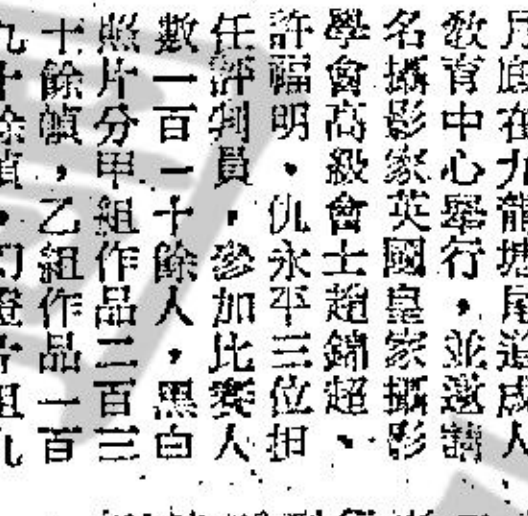 月底在九龍塘尾道成人
教育中心舉行，並邀請
名攝影家英國皇家攝影
學會高級會士趙錦超、
許福明、仇永平三位担
任評判員，參加比賽人
數一百一十餘人，黑白
照片分甲組作品二百三
十餘幀，乙組作品一百
九十餘幀，幻燈片組九